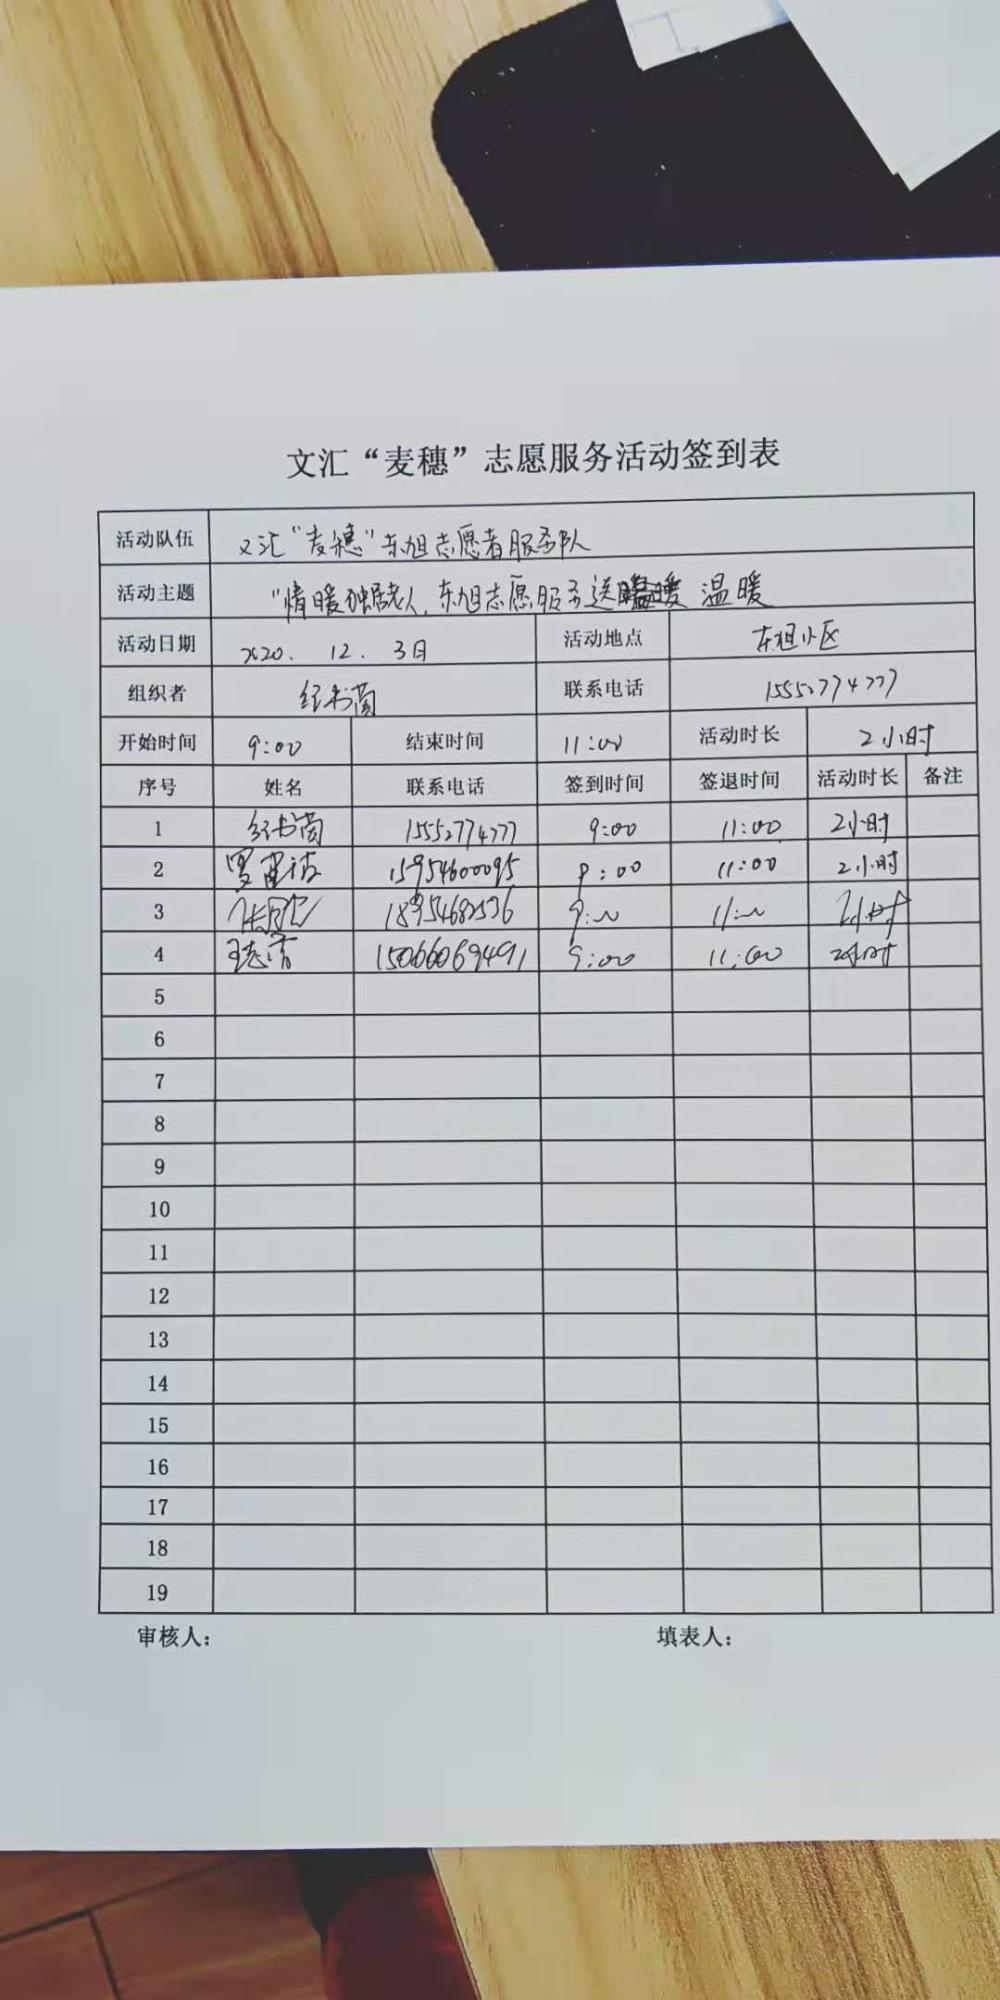 文汇“麦穗”志愿服务活动签到表
活动队伍 文汇“麦穗”东旭志愿者服务队
活动主题 “情暖独居老人,东旭志愿服务送 温暖
活动日期 2020. 12. 3日 活动地点 东旭小区
组织者 联系电话 15552774777
开始时间 9:00 结束时间 11:00 活动时长 2小时
序号 姓名 联系电话 签到时间 签退时间 活动时长 备注
1 15552774777 9:00 11:00 2小时
2 15954600095 9:00 11:00 2小时
3 9:00 11:00 2小时
4 15066069491 9:00 11:00 2小时
5
6
7
8
9
10
11
12
13
14
15
16
17
18
19
审核人: 填表人: